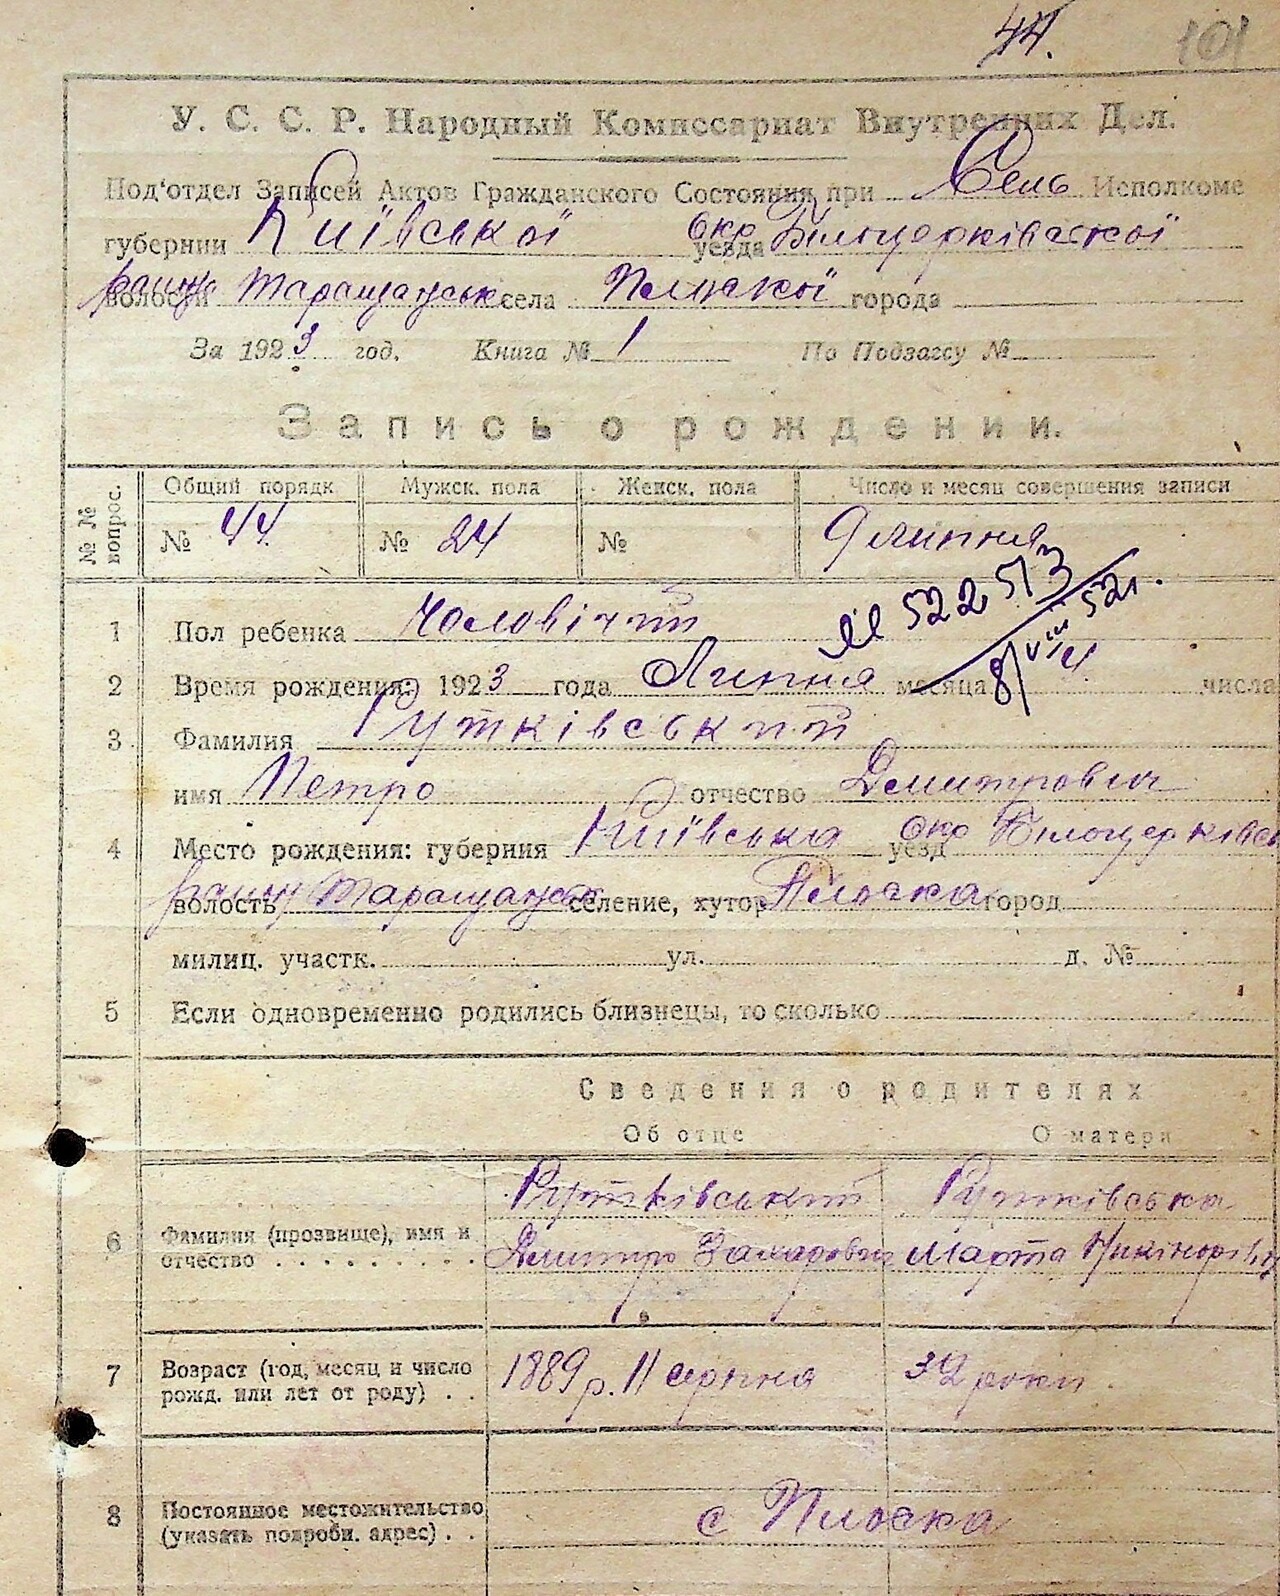 44. 101
У. С. С. Р. Народный Комиссариат Внутренних Дел.
Под‘отдел Записей Актов Гражданского Состояния при Сель Исполкоме
губернии Київської Окр уезда Білоцерківської
волости району Таращанськ села Плоскої города
За 1923 год. Книга № 1 По Подзагсу №
Запись о рождении.
№ № вопрос. Общий порядк Мужск. пола Женск. пола Число и месяц совершения записи
№ 44 № 24 № 9 липня
№ 522513
8/VIII 52г.
1 Пол ребенка Чоловічий
2 Время рождения: 1923 года Липня месяца 4 числа
3 Фамилия Рутківський
имя Петро отчество Демитрович
4 Место рождения: губерния Київська Окр уезд Білоцерківсь
волость район Таращанськ селение, хутор Плоска город
милиц. участк. ул. д. №
5 Если одновременно родились близнецы, то сколько
Сведения о родителях
Об отце О матери
Рутківський Рутківська
6 Фамилия (прозвище), имя и отчество Дмитро Захарович Марта Никінорівна
7 Возраст (год, месяц и число рожд. или лет от роду) 1889 р. 11 серпня 32 роки
8 Постоянное местожительство (указать подробн. адрес) с Плоска